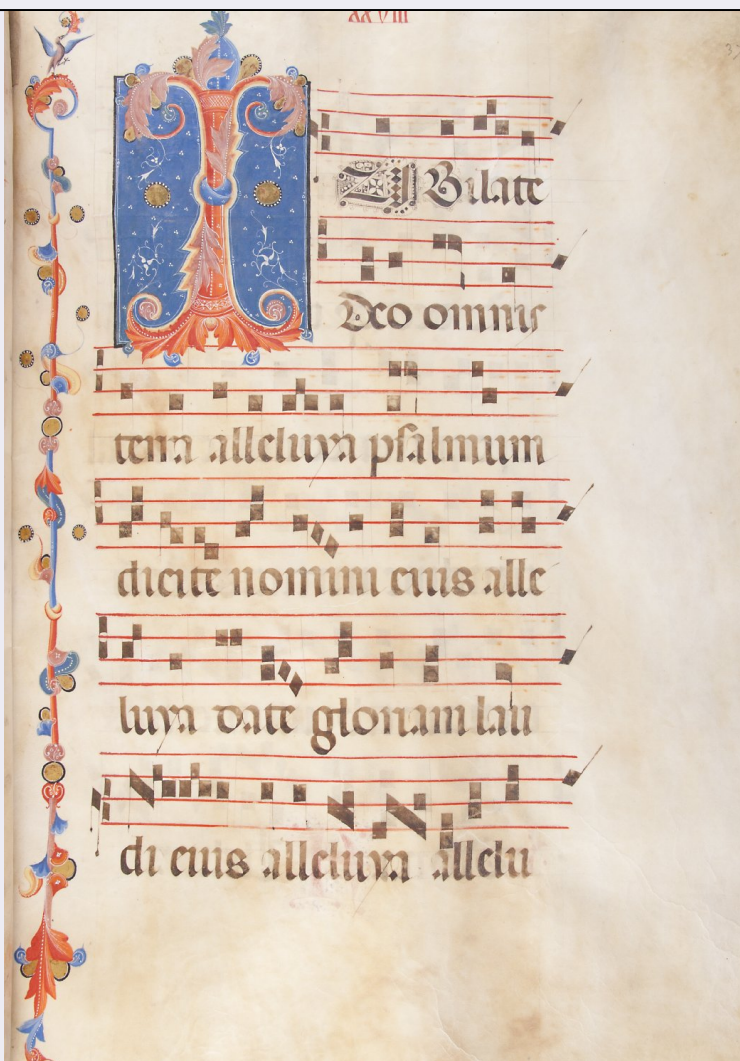 XXVIII
37
IUBilate
Deo omnis
terra alleluya psalmum
dicite nomini eius alle
luya date gloriam lau
di eius alleluya allelu